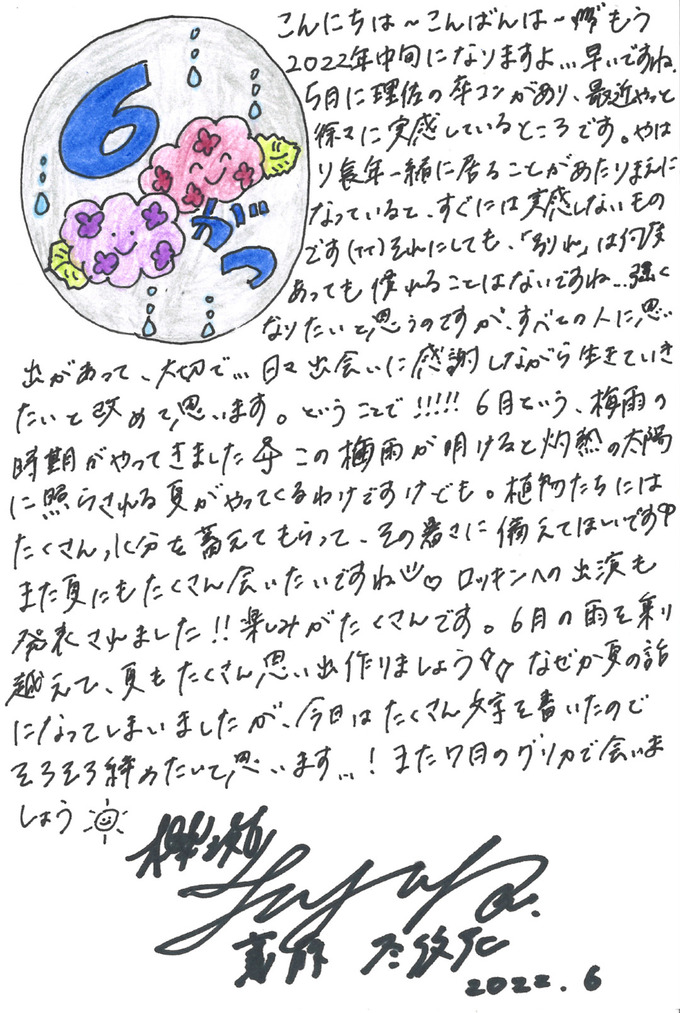 6
がつ
こんにちは~こんばんは~もう
2022年中旬になりますよ...早いですね.
5月に理佐の卒コンがあり、最近やっと
徐々に実感しているところです。やは
り長年一緒に居ることがあたりまえに
なっていると、すぐには実感しないもの
です(TT)それにしても、「別れ」は何度
あっても慣れることはないですね...強く
なりたいと思うのですが、すべての人に思い
出があって、大切で...日々出会いに感謝しながら生きていき
たいと改めて思います。ということで!!!!! 6月という、梅雨の
時期がやってきました この梅雨が明けると灼熱の太陽
に照らされる夏がやってくるわけですけども。植物たちには
たくさん水分を蓄えてもらって、その暑さに備えてほしいです
また夏にもたくさん会いたいですね♡ ロッキンへの出演も
発表されました!!楽しみがたくさんです。6月の雨を乗り
越えて、夏もたくさん思い出作りましょう なぜか夏の話
になってしまいましたが、今日はたくさん文字を書いたので
そろそろ終わたいと思います...!また7月のグリカで会いま
しょう
欅坂
齋藤 冬優花
2022.6